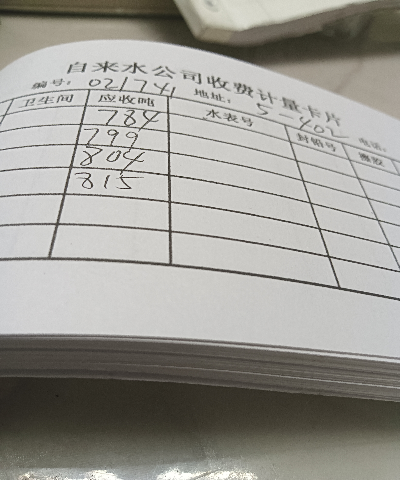 自来水公司收费计量卡片
编号: 021741 地址: 5-402 电话:
卫生间 应收吨 水表号 封铅号
784
799
804
815